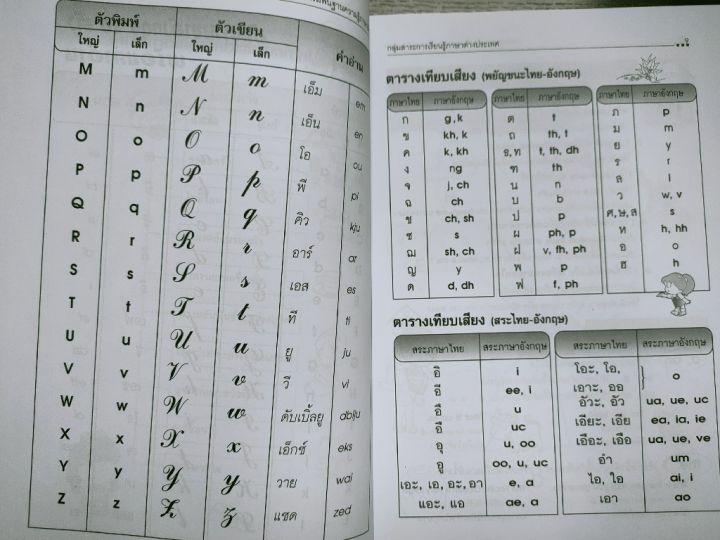 ตัวพิมพ์ ตัวเขียน คำอ่าน
ใหญ่ เล็ก ใหญ่ เล็ก
M m M m เอ็ม em
N n N n เอ็น en
O o O o โอ ou
P p P p พี pi
Q q Q q คิว kju
R r R r อาร์ ar
S s S s เอส es
T t T t ที ti
U u U u ยู ju
V v V v วี vi
W w W w ดับเบิ้ลยู
X x X x เอ็กซ์ eks
Y y Y y วาย wai
Z z Z z แซด zed
กลุ่มสาระการเรียนรู้ภาษาต่างประเทศ
ตารางเทียบเสียง (พยัญชนะไทย-อังกฤษ)
ภาษาไทย ภาษาอังกฤษ ภาษาไทย ภาษาอังกฤษ ภาษาไทย ภาษาอังกฤษ
ก g, k ต t ภ p
ข kh, k ถ th, t ม m
ค k, kh ธ, ท t, th, dh ย y
ง ng th ร r
จ j, ch น n ล l
ฉ ch บ b ว w, v
ช ch, sh ป p ศ, ษ, ส s
ซ s ผ ph, p ห h, hh
ฌ sh, ch ฝ v, fh, ph อ o
ญ y พ p ฮ h
ด d, dh ฟ f, ph
ตารางเทียบเสียง (สระไทย-อังกฤษ)
สระภาษาไทย สระภาษาอังกฤษ สระภาษาไทย สระภาษาอังกฤษ
อิ i โอะ, โอ,
อี ee, i เอาะ, ออ } o
อึ u อัวะ, อัว ua, ue, uc
อือ uc เอียะ, เอีย ea, ia, ie
อุ u, oo เอือะ, เอือ ua, ue, ve
อู oo, u, uc อำ um
เอะ, เอ, อะ, อา e, a ไอ, ใอ ai, i
แอะ, แอ ae, a เอา ao